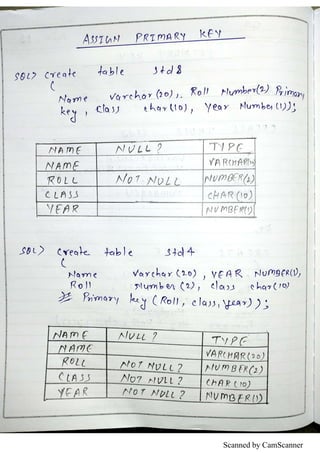 ASSIGN PRIMARY KEY
SQL> Create table Std8
(
Name Varchar(20), Roll Number(2) Primary
key, Class Char(10), Year Number(1));
NAME NULL? TYPE
NAME VARCHAR
ROLL NOT NULL NUMBER(2)
CLASS CHAR(10)
YEAR NUMBER(1)
SQL> Create table Std4
(
Name Varchar(20), YEAR NUMBER(1),
Roll Number(2), class char(10)
Primary key (Roll, class, year));
NAME NULL? TYPE
NAME VARCHAR(20)
ROLL NOT NULL? NUMBER(2)
CLASS NOT NULL? CHAR(10)
YEAR NOT NULL? NUMBER(1)
Scanned by CamScanner